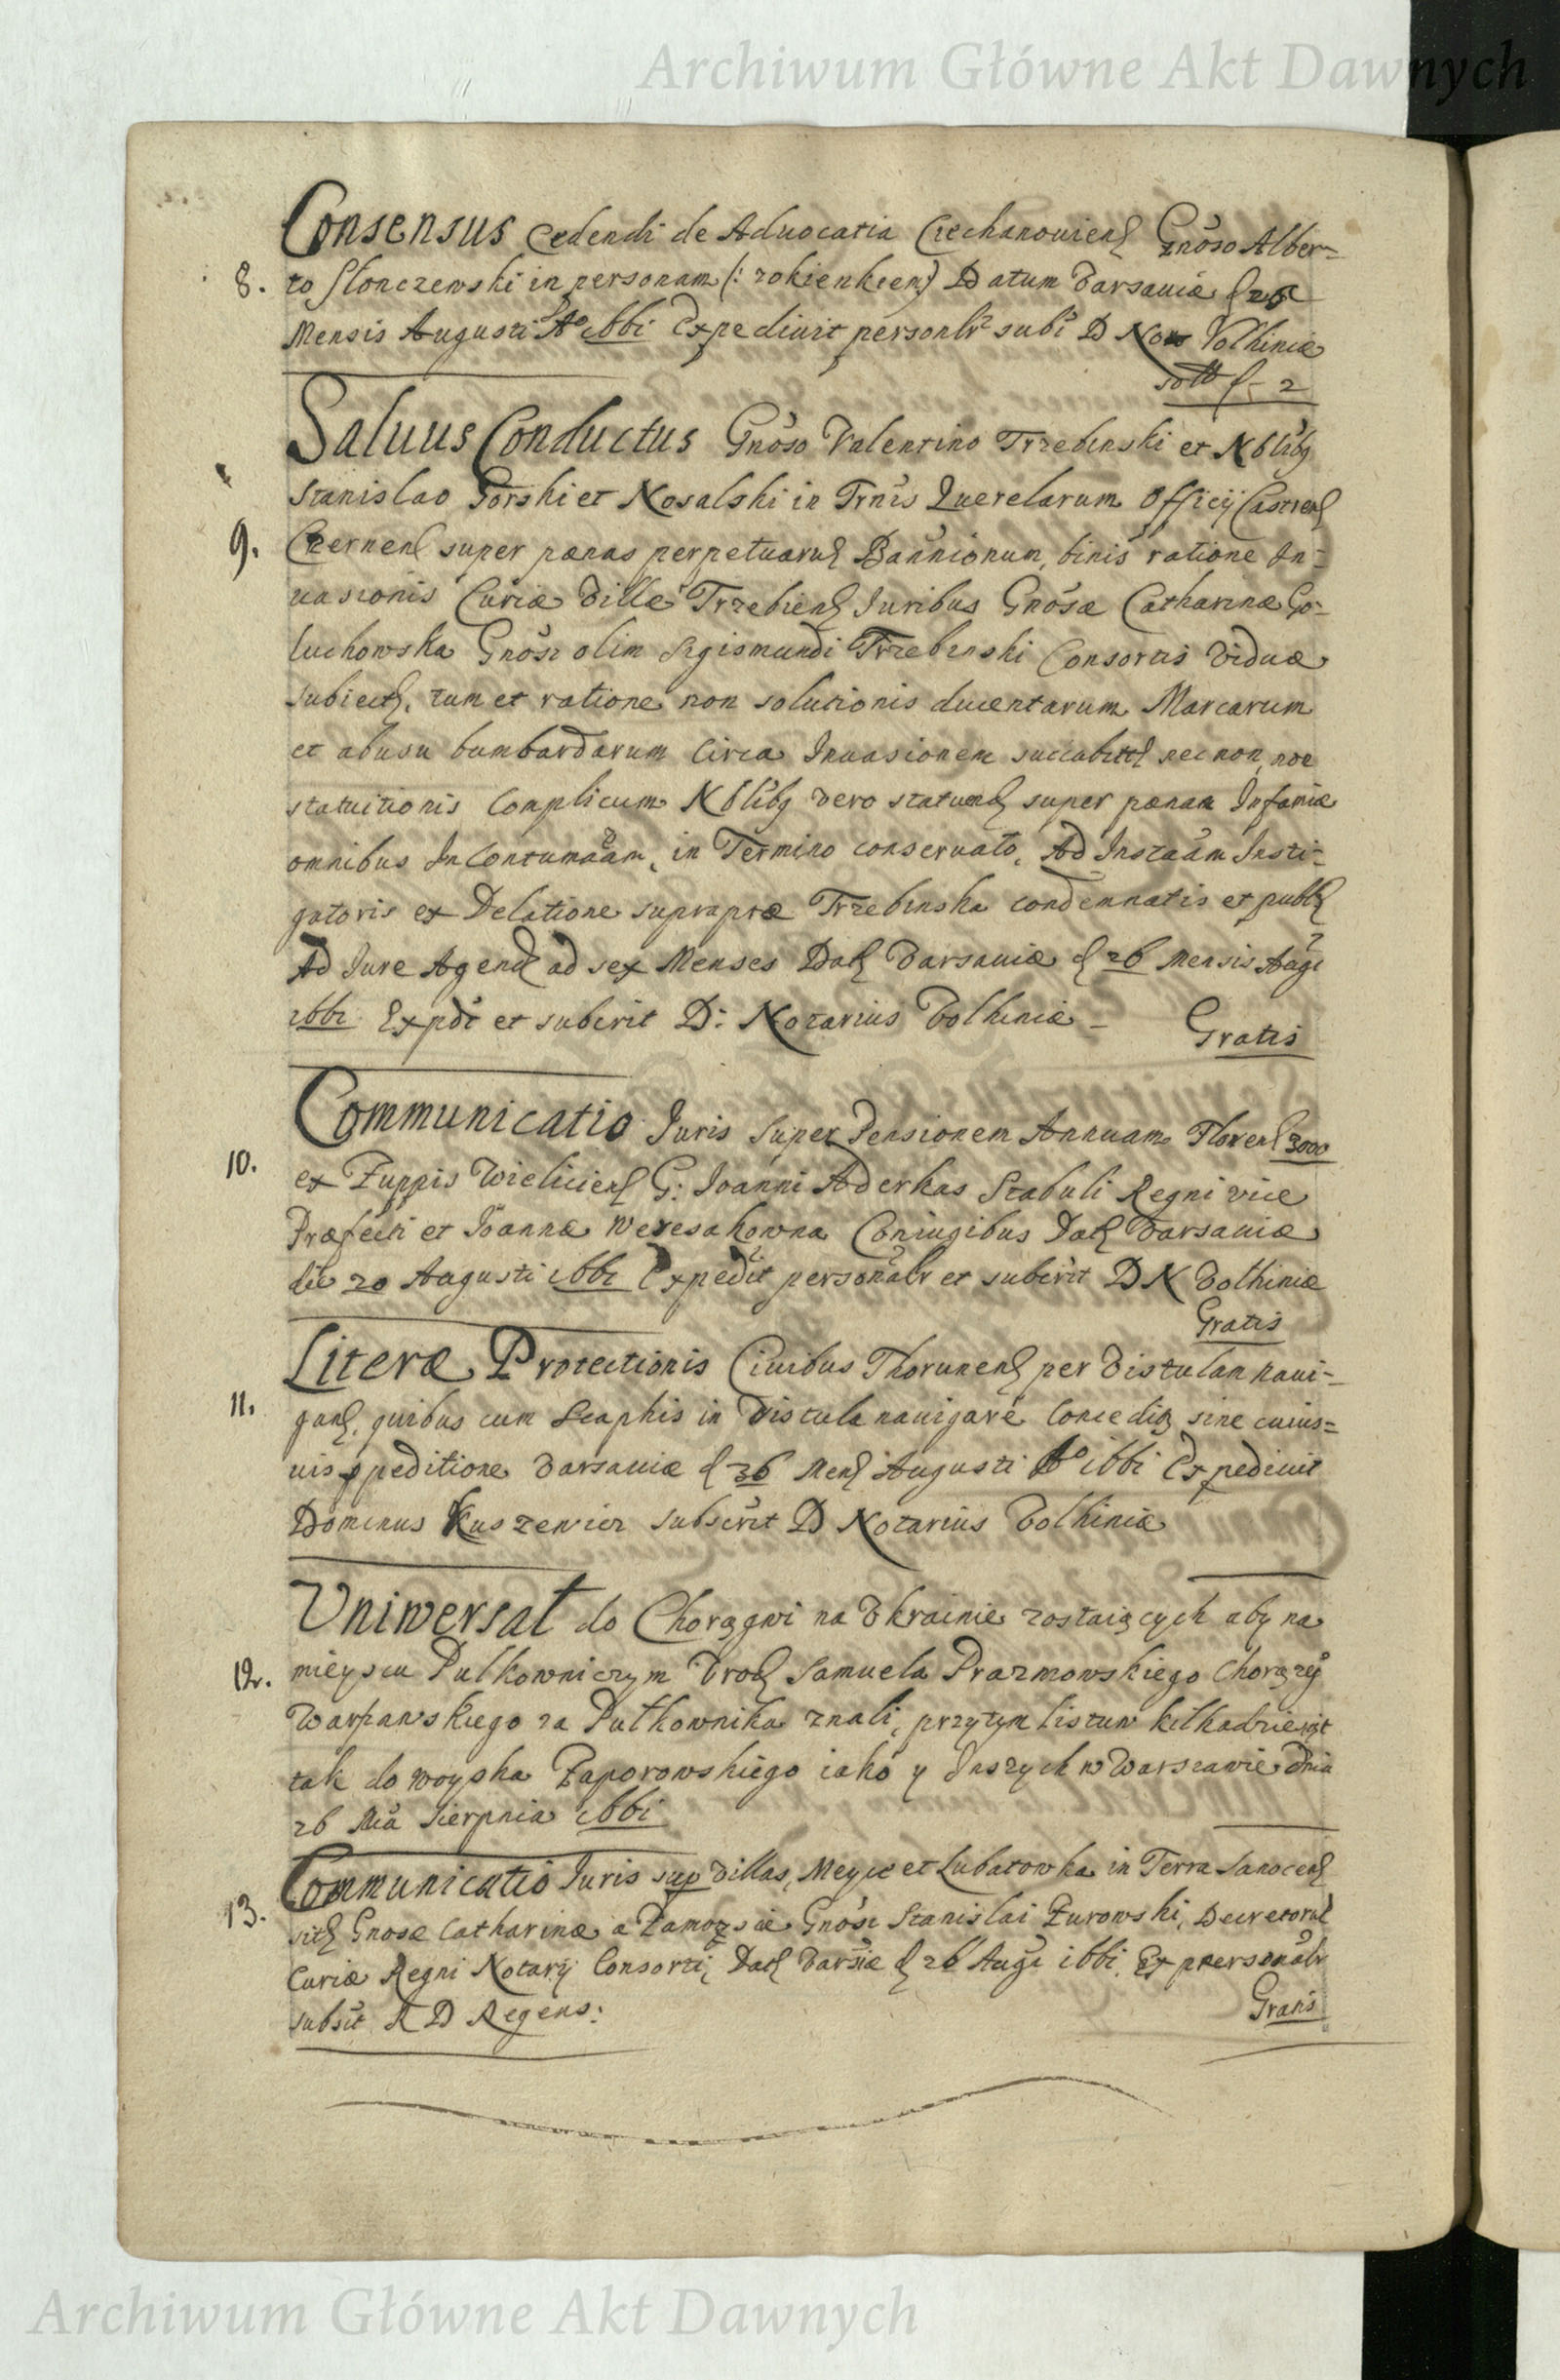 Archiwum Główne Akt Dawnych
Consensus cedendi de Aduocatia Ciechanouien Gnoso Alber=
8. to Słonczewski in personam (: zokienkiem) Datum Varsauiæ d 26
Mensis Augusti Ao 1661 Expediuit personlr subt D Nors Volhiniæ
sott f - 2
Saluus Conductus Gnoso Valentino Trzebinski et Nblibq
Stanislao Gorski et Nosalski in Trnis Querelarum Officÿ Castren
9. Czernen super pænas perpetuarum Bannionum, binis ratione In=
uasionis Curiæ Villæ Trzebien Juribus Gnosæ Catharinæ Go=
luchowska Gnosi olim Sigismundi Trzebinski Consortis Viduæ
subiect. tum et ratione non solutionis ducentarum Marcarum
et abusu bumbardarum circa Inuasionem nec non, non
statuitionis Complicum Nblibq vero statuend super pænam Infamiæ
omnibus In Contumaam, in Termino conseruato, Ad Instaam Insti=
gatoris ex Delatione supraptæ Trzebinska condemnatis et publ
Ad Jure Agend ad sex Menses Dat Varsauiæ d 26 Mensis Augi
1661 Expdt et subscrit D: Notarius Volhiniæ - Gratis
Communicatio Juris super Pensionem Annuam Floren 3000
10. ex Zuppis Wieliciens G: Joanni Aderkas Stabuli Regni vice
Præfecti et Joannæ Weresakowna Coniugibus Dat Varsauiæ
die 20 Augusti 1661 Expedit personalr et subscrit D N Volhiniæ
Gratis
Literæ Protectionis Ciuibus Thorunen per Vistulam naui=
11. gan. quibus cum Scaphis in Vistula nauigare conceditq sine cuius=
uis ppeditione Varsauiæ d 26 Men Augusti Ao 1661 Expediuit
Dominus Kuszewicz subscrit D Notarius Volhiniæ
Vniwersał do Chorągwi na Vkrainie zostaiących aby na
12. mieyscu Pułkowniczym Vrod Samuela Prazmowskiego Chorąze°
Warszawskiego za Pułkownika znali, przytym listuw kilkadziesiąt
tak do woyska Zaporowskiego iako y Inszych w Warszawie Dnia
26 Mca Sierpnia 1661
Communicatio Juris sup Villas, Meyce et Lubatowka in Terra Sanocen
13. sit Gnosæ Catharinæ a Zamozscie Gnosi Stanislai Zurowski, Decretoru
Curiæ Regni Notarÿ Consorti, Dat Varsiæ d 26 Augi 1661. Ex personalr
subsit R D Regens: Gratis
Archiwum Główne Akt Dawnych